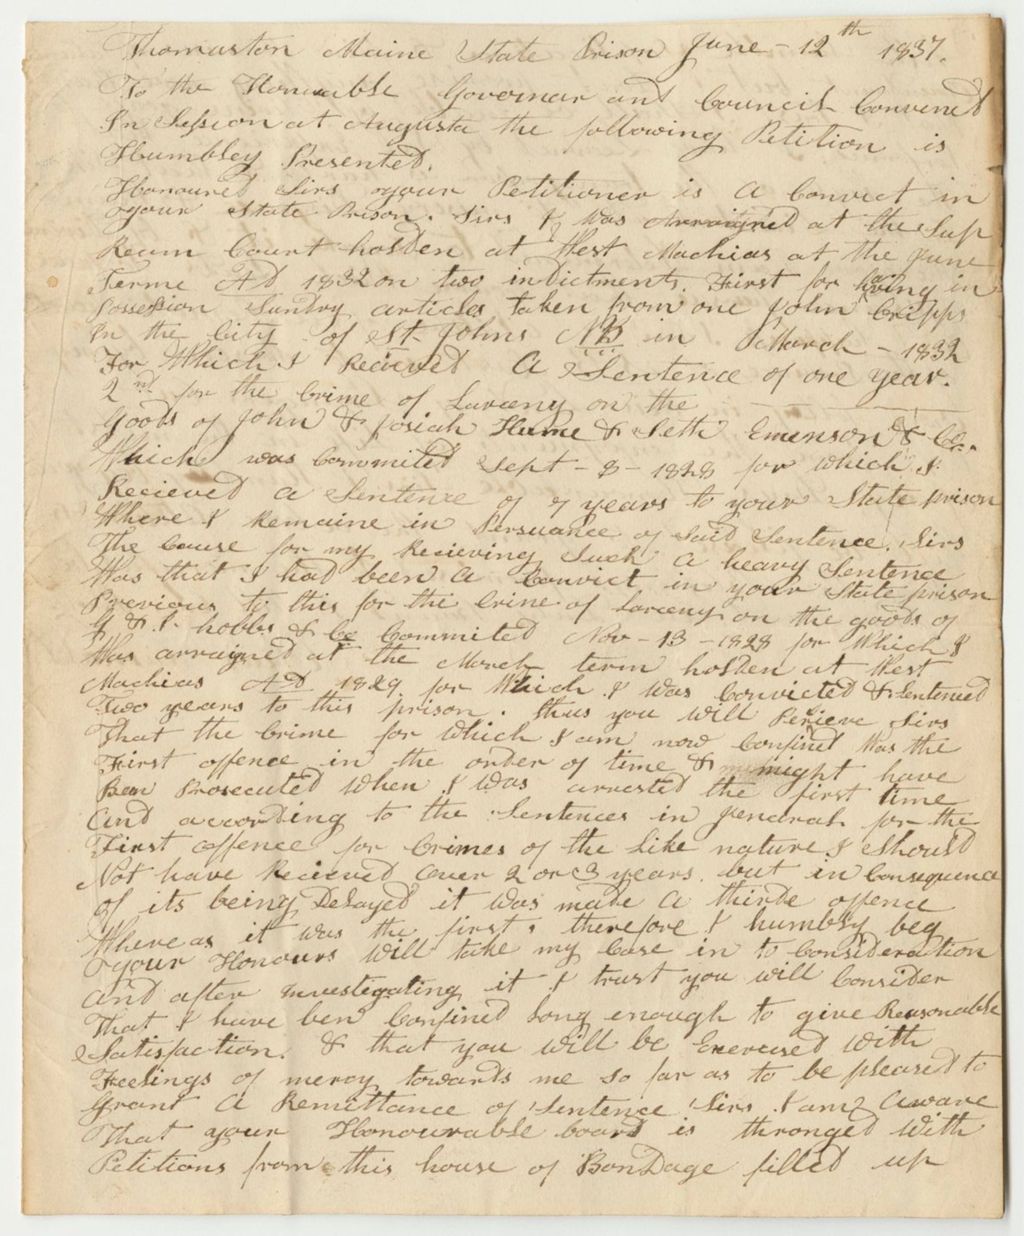 Thomaston Maine State Prison June - 12th 1837.
To the Honorable Governor and Council Convened
In Session at Augusta the following Petition is
Humbley Presented.
Honoured Sirs your Petitioner is a Convict in
your State Prison. Sirs I was Arraigned at the Sup
Reum Court holden at West Machias at the June
Terme AD 1832 on two indictments. First for having in
Possession Sundry articles taken from one John Cripps
in the City of St. Johns NB in March - 1832
For Which I Recieved A Sentence of one year.
2nd for the Crime of Larceny on the
Goods of John & Josiah Hume & Seth Emerson & Co.
Which was Commited Sept - 8 - 1828 for which I
Recieved a Sentence of 7 years to your State prison
Where I Remaine in Persuance of Said Sentence. Sirs
The Cause for my Recieving Such A heavy Sentence
Was that I had been a Convict in your State prison
Previous to this for the Crime of Larceny on the goods of
& I. hobbs & Co Commited Nov - 13 - 1828 for Which I
Was arraigned at the March term holden at West
Machias AD 1829 for Which I was Convicted & Sentenced
Two years to this prison. thus you will Perieve Sirs
That the Crime for which I am now Confined Was the
First offence in the order of time & might have
Been Prosecuted When I was arrested the first time
And according to the Sentences in Jenderal for the
First offence for Crimes of the Like nature I Should
Not have Recieved over 2 or 3 years. but in Consequence
of its being Delayed it was made a thirde offence
Where as it was the first. therefore I humbly beg
your Honours will take my Case in to Consideration
And after investegating it I trust you will Consider
That I have ben Confined Long enough to give Reasonable
Satisfaction. & that you will be Exercised with
Feelings of mercy towards me so far as to be pleased to
Grant a Remittance of Sentence Sirs I am aware
That your Honourable board is thronged with
Petitions from this house of Bondage filled up